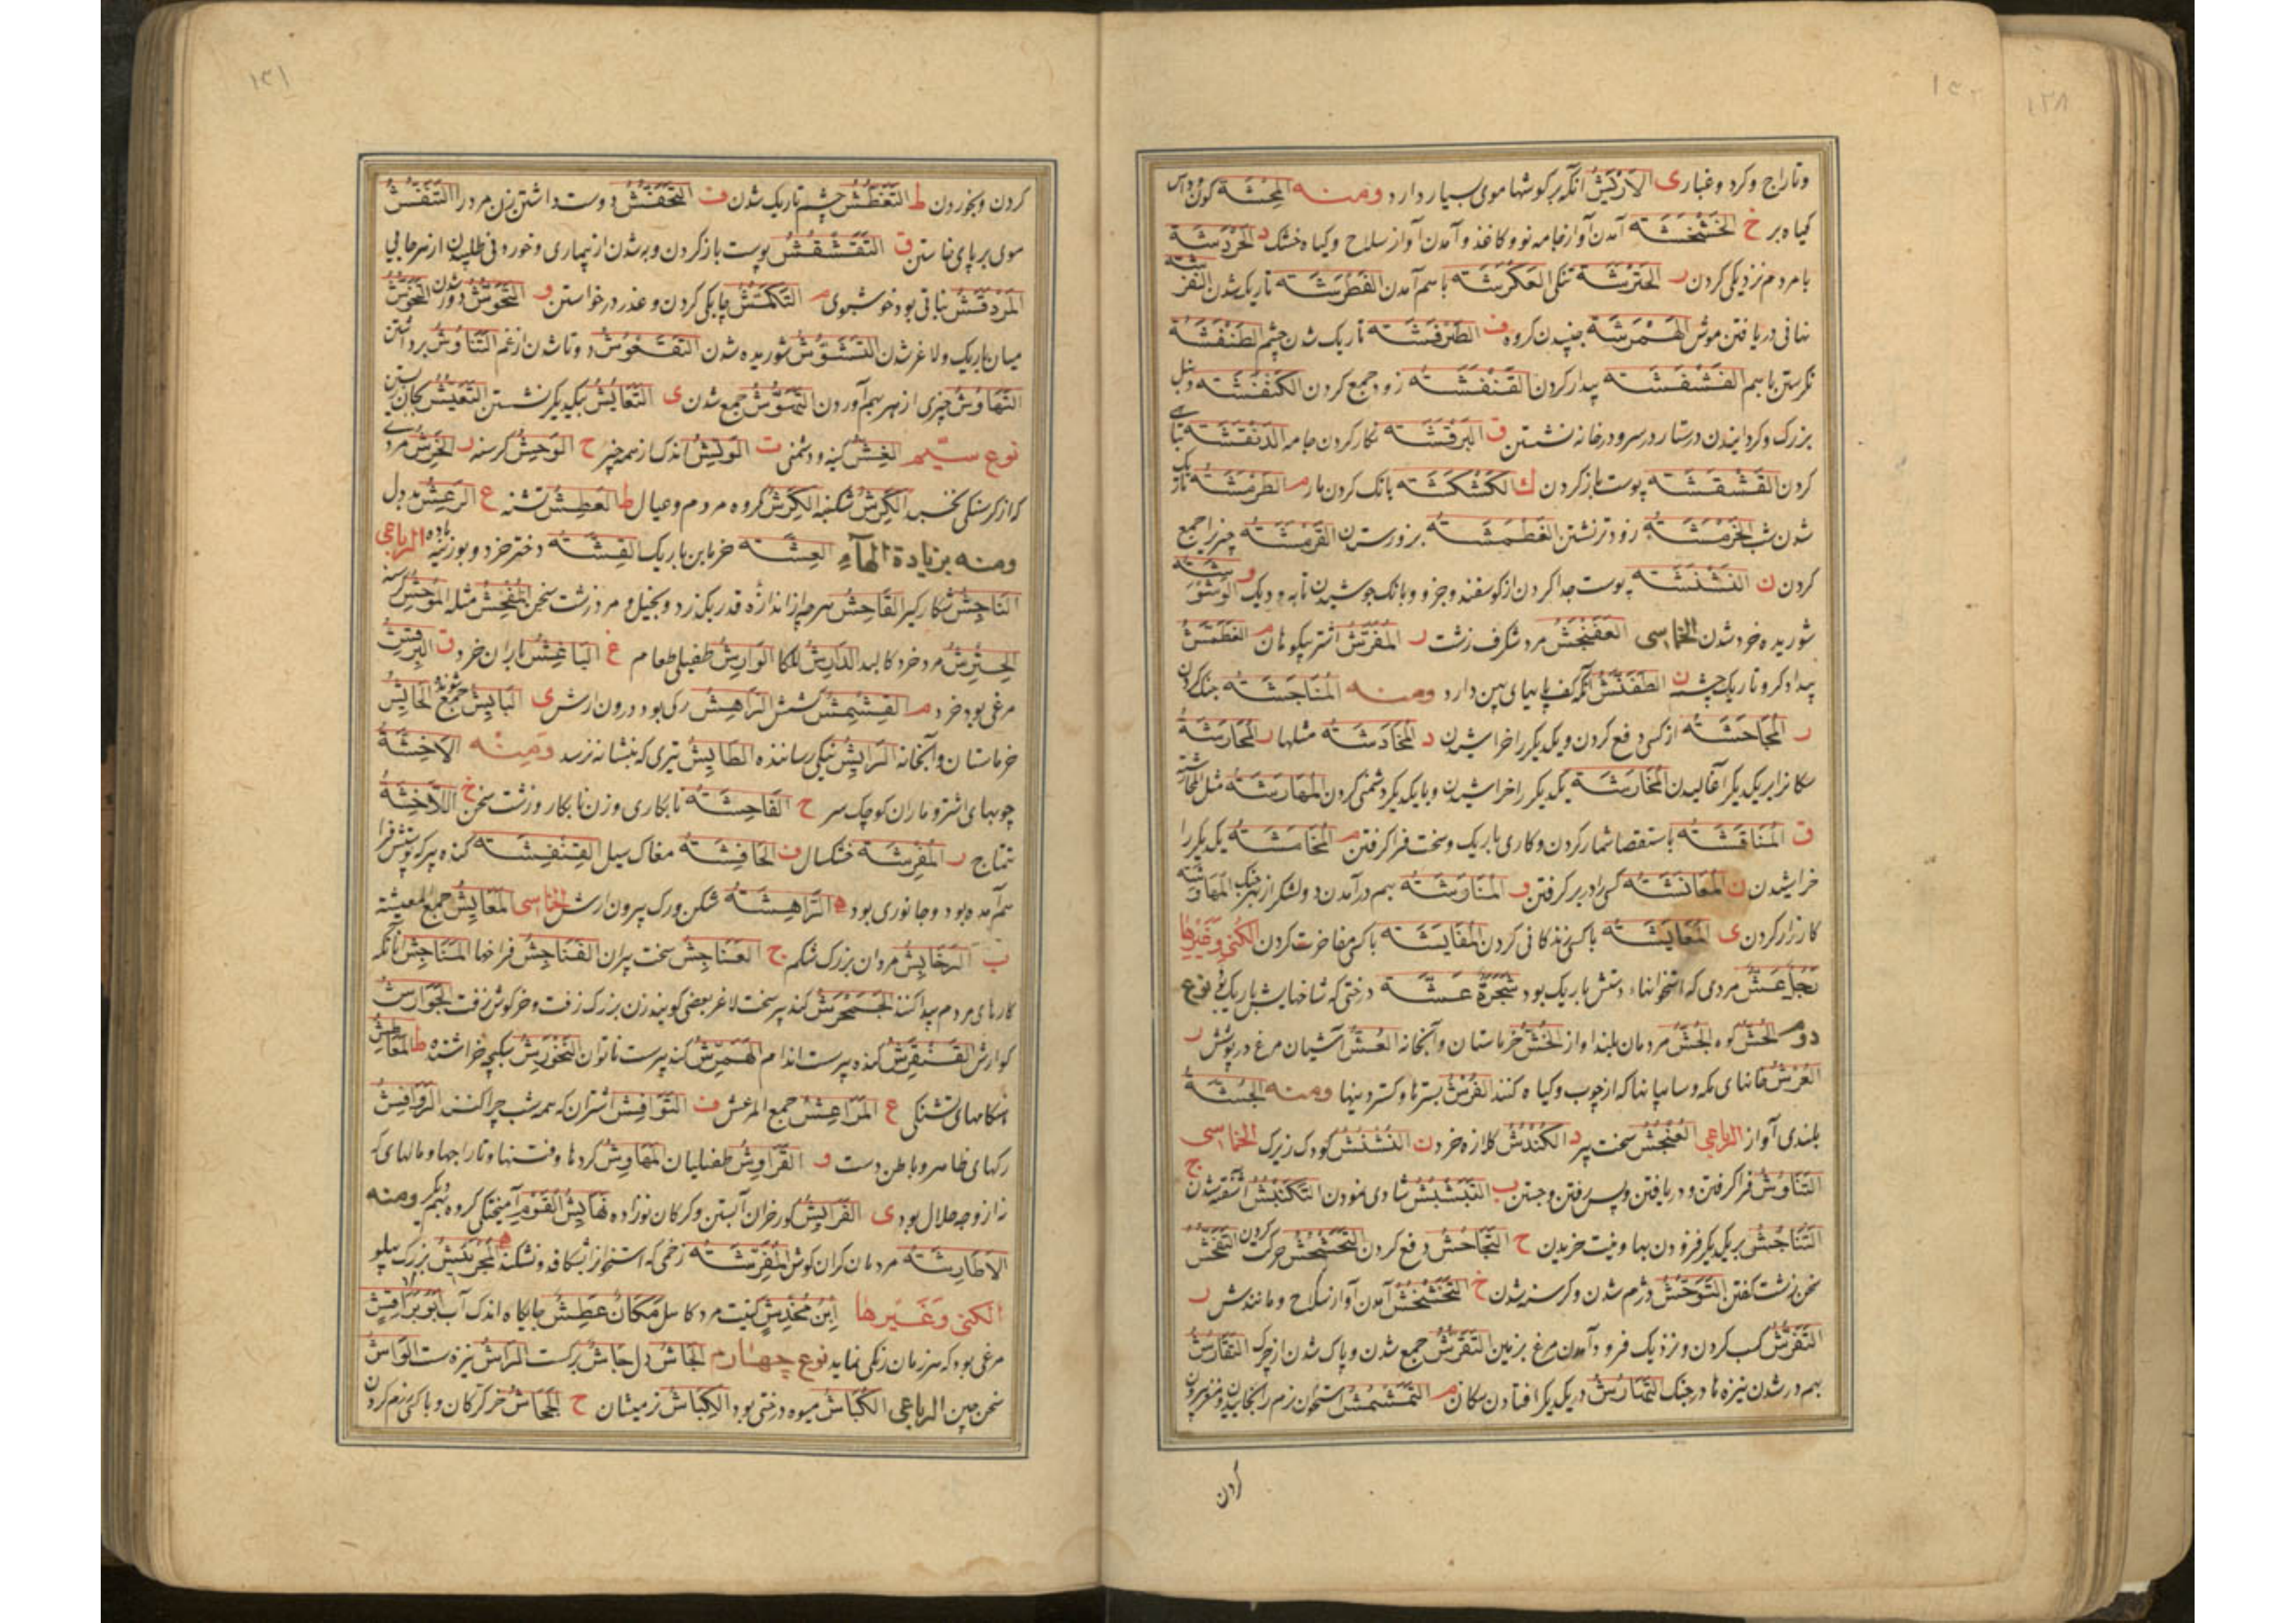 وتاراج وكرد وغباری الاَرْيَشُ آنكه بركوشها موی بسیار دارد ومنه المِحَشَّة
كیاه بر خ الخَشْخَشَة آمدن آواز جامه نو وكاغذ وآمدن آواز سلاح وكیاه خشك د الخَرْدَشَة
با مردم نزدیكی كردن ر الحَتْرَشَة تنكی العَكْرَشَة باسم آمدن الغَطْرَشَة تاریك شدن
نهانی دریافتن موش الهَمْرَشَة جنبیدن كروه ف الطَرْفَشَة تاریك شدن چشم الطَنْفَشَة
نكرستن باسم الفَشْفَشَة پیدار كردن القَنْفَشَة زود جمع كردن الكَنْفَشَة
بزرك وكردانیدن دستار در سر و در خانه نشستن ق البَرْقَشَة نكار كردن جامه الدَنْقَشَة
كردن القَشْقَشَة پوست باز كردن ك الكَشْكَشَة بانك كردن مار م الطَرْمَشَة
شدن شب الخَرْمَشَة زود تر نشتن الغَطْمَشَة بزور ستدن القَرْمَشَة چیز را جمع
كردن ن النَشْنَشَة پوست جدا كردن از كوسفند وجز و وبانك جوشیدن تابه ودیك و
شوریده خرد شدن الخماسی العَفَنْجَشُ مرد شكرف زشت ر المُفَرَّشُ اشتر بیكوهان م الغَطَمَّشُ
بیدادكر وتاریك چشم ن الطَفَنَّشُ آنكه كف پایهای پهن دارد ومنه المُنَاجَشَة
ر المُجَاحَشَة از كسی دفع كردن ویكدیكر را خراشیدن د المُخَادَشَة مثلها ر المُحَارَشَة
سكانرا بر یكدیكر آغالیدن المُخَارَشَة یكدیكر را خراشیدن وبا یكدیكر دشمنی كردن المُهَارَشَة مثل
ق المُنَاقَشَة باستقصا شمار كردن وكاری باریك وسخت فرا كرفتن م المُخَامَشَة یكدیكر را
خراشیدن ن المُعَانَشَة كسی را در بر كرفتن و المُنَاوَشَة بهم در آمدن دو لشكر از بهر جنك
كارزار كردن ی المُعَايَشَة با كسی زندكانی كردن المُفَايَشَة با كسی مفاخرت كردن الكنی وغیرها
رَجُلٌ عَشٌّ مردی كه استخوانهاء دستش باریك بود شَجَرَةٌ عَشَّة درختی كه شاخهایش باریك نوع
دوم الحُشُّ كوه الجُشُّ مردمان بلند آواز الحُشُّ خرماستان وآبخانه العُشُّ آشیان مرغ در پوشش ر
العُرْشُ خانهای مكه وسایبانها كه از چوب وكیاه كنند الفُرْشُ بسترها وكستردنیها ومنه الجُشَّة
بلندی آواز الرباعی العُنْجُشُ سخت پیر د الكُنْدُشُ كلازه خرد ن النُشْنُشُ كودك زیرك الخماسی
التَنَاوُشُ فرا كرفتن ودر یافتن وپس رفتن وجستن ب التَبَشْبُشُ شادی نمودن التَكَنْبُشُ آشفته شدن ج
التَنَاجُشُ بر یكدیكر فزودن بها ونیت خریدن ح التَجَاحُشُ دفع كردن التَحَشْحُشُ حركت كردن التَفَحُّشُ
سخن زشت كفتن التَوَحُّشُ دژم شدن وكرسنه شدن خ التَخَشْخُشُ آمدن آواز سلاح ومانندش ر
التَقَرُّشُ كسب كردن ونزدیك فرود آمدن مرغ بزمین التَقَرُّشُ جمع شدن وپاك شدن از چرك التَقَارُشُ
بهم در شدن نیزه ها در جنك التَهَارُشُ در یكدیكر افتادن سكان م التَمَشْمُشُ استخوان نرم را
كردن
كردن وبخوردن ط التَغَطُّشُ چشم تاریك شدن ف التَحَفُّشُ دوست داشتن زن مرد را التَنَفُّشُ
موی بر پای خاستن ق التَقَشْقُشُ پوست باز كردن وبه شدن از بیماری وخوردنی طلبیدن از هر جایی
المَرْدَقُشُ نباتی بود خوشبوی م التَكَمُّشُ چابكی كردن وعذر در خواستن و التَحَوُّشُ دور شدن التَخَوُّشُ
میان باریك ولاغر شدن التَشَوُّشُ شوریده شدن التَقَعْوُشُ دوتا شدن از غم التَنَاوُشُ برداشتن
التَهَاوُشُ چیزی از هر سهم آوردن التَهَوُّشُ جمع شدن ی التَعَايُشُ بیكدیكر نشستن التَعَيُّشُ
نوع سیم الغِشُّ كینه ودشمنی ت الوَتِشُ اندك از همه چیز ح الوَحِشُ كرسنه ر الخَرِشُ مردی
كه از كرسنكی نخسبد الكَرِشُ شكنبه الكِرْشُ كروه مردم وعیال ط العَطِشُ تشنه ع الرَعِشُ بددل
ومنه بزیادة الهاء العِشَّة خرمابن باریك القِشَّة دختر خرد وبوزینه ماده الرباعی
النَاجِشُ شكار كیر الفَاحِشُ هر چه از اندازه قدر بكذرد وبخیل ومرد زشت سخن المُفْحِشُ مثله المُوحِشُ كرسنه
الحِتْرِشُ مرد خرد كالبد الدَارِشُ لكا الوَارِشُ طفیلی طعام غ البَاغِشُ باران خرد ق البِرْقِشُ
مرغی بود خرد م القِشْمِشُ كشمش الرَاهِشُ ركی بود درون ارش ی البَايِشُ جمع شونده الحَايِشُ
خرماستان وآبخانه الرَايِشُ نیكی رساننده الطَايِشُ تیری كه بنشانه نرسد ومنه الاَخِشَّة
چوبهای اشتر وماران كوچك سر ح الفَاحِشَة نابكاری وزن نابكار وزشت سخن خ اللَاخِشَة
تتماج ر المُقْرِشَة خشكسال ف الحَافِشَة مغاك سیل القِنْفِشَة كنده پیر كه پوستش فرا
هم آمده بود وجانوری بود ه الرَاهِشَة شكن ورك بیرون ارش الخماسی المَعَايِشُ جمع المعیشة
ب الرَخَابِشُ مردان بزرك شكم ج العَنَاجِشُ سخت پیران الفَنَاجِشُ فراخها المَنَاجِشُ آنانكه
كارهای مردم پیدا كنند الجَحْمَرِشُ كنده پیر سخت لاغر بعضی كویند زن بزرك زفت وخركوش زفت الجَوَارِشُ
كوارش القَنْفَرِشُ كنده پیر سست اندام الهَمَّرِشُ كنده پیر سست ناتوان النَخْوَرِشُ سكبچه خراشنده ط المَعَاطِشُ
هنكامهای تشنكی ع المَرَاعِشُ جمع المرعش ف النَوَافِشُ اشتران كه همه شب چرا كنند الرَوَافِشُ
ركهای ظاهر وباطن دست و القَرَاوِشُ طفیلیان المَهَاوِشُ كردها وفتنها وتاراجها ومالهای كه
نه از وجه حلال بود ی الفَرَايِشُ كور خران آبستن وكركان نوزاده هَايِشُ القَوْمِ آمیختكی كروه بهم دیكر ومنه
الاَطَارِشَة مردمان كران كوش المُفَرِّشَة زخمی كه استخوان بشكافد ونشكند ه المُجْرَئِشُ بزرك پهلو
الكنی وغیرها اِبْنُ مُخَدِّشٍ كنیت مرد كاهل مَكَانٌ عَطِشٌ جایكاه اندك آب اَبُو بَرَاقِشَ
مرغی بود كه هر زمان رنكی نماید نوع چهارم الجَاشُ دل جَاشَ بركشت الرَاشُ نیزه سست الوَاشُ
سخن چین الرباعی الكَبَاشُ میوه درختی بود الكِبَاشُ نر میشان ح الجِحَاشُ خر كركان وبا كسی رزم كردن